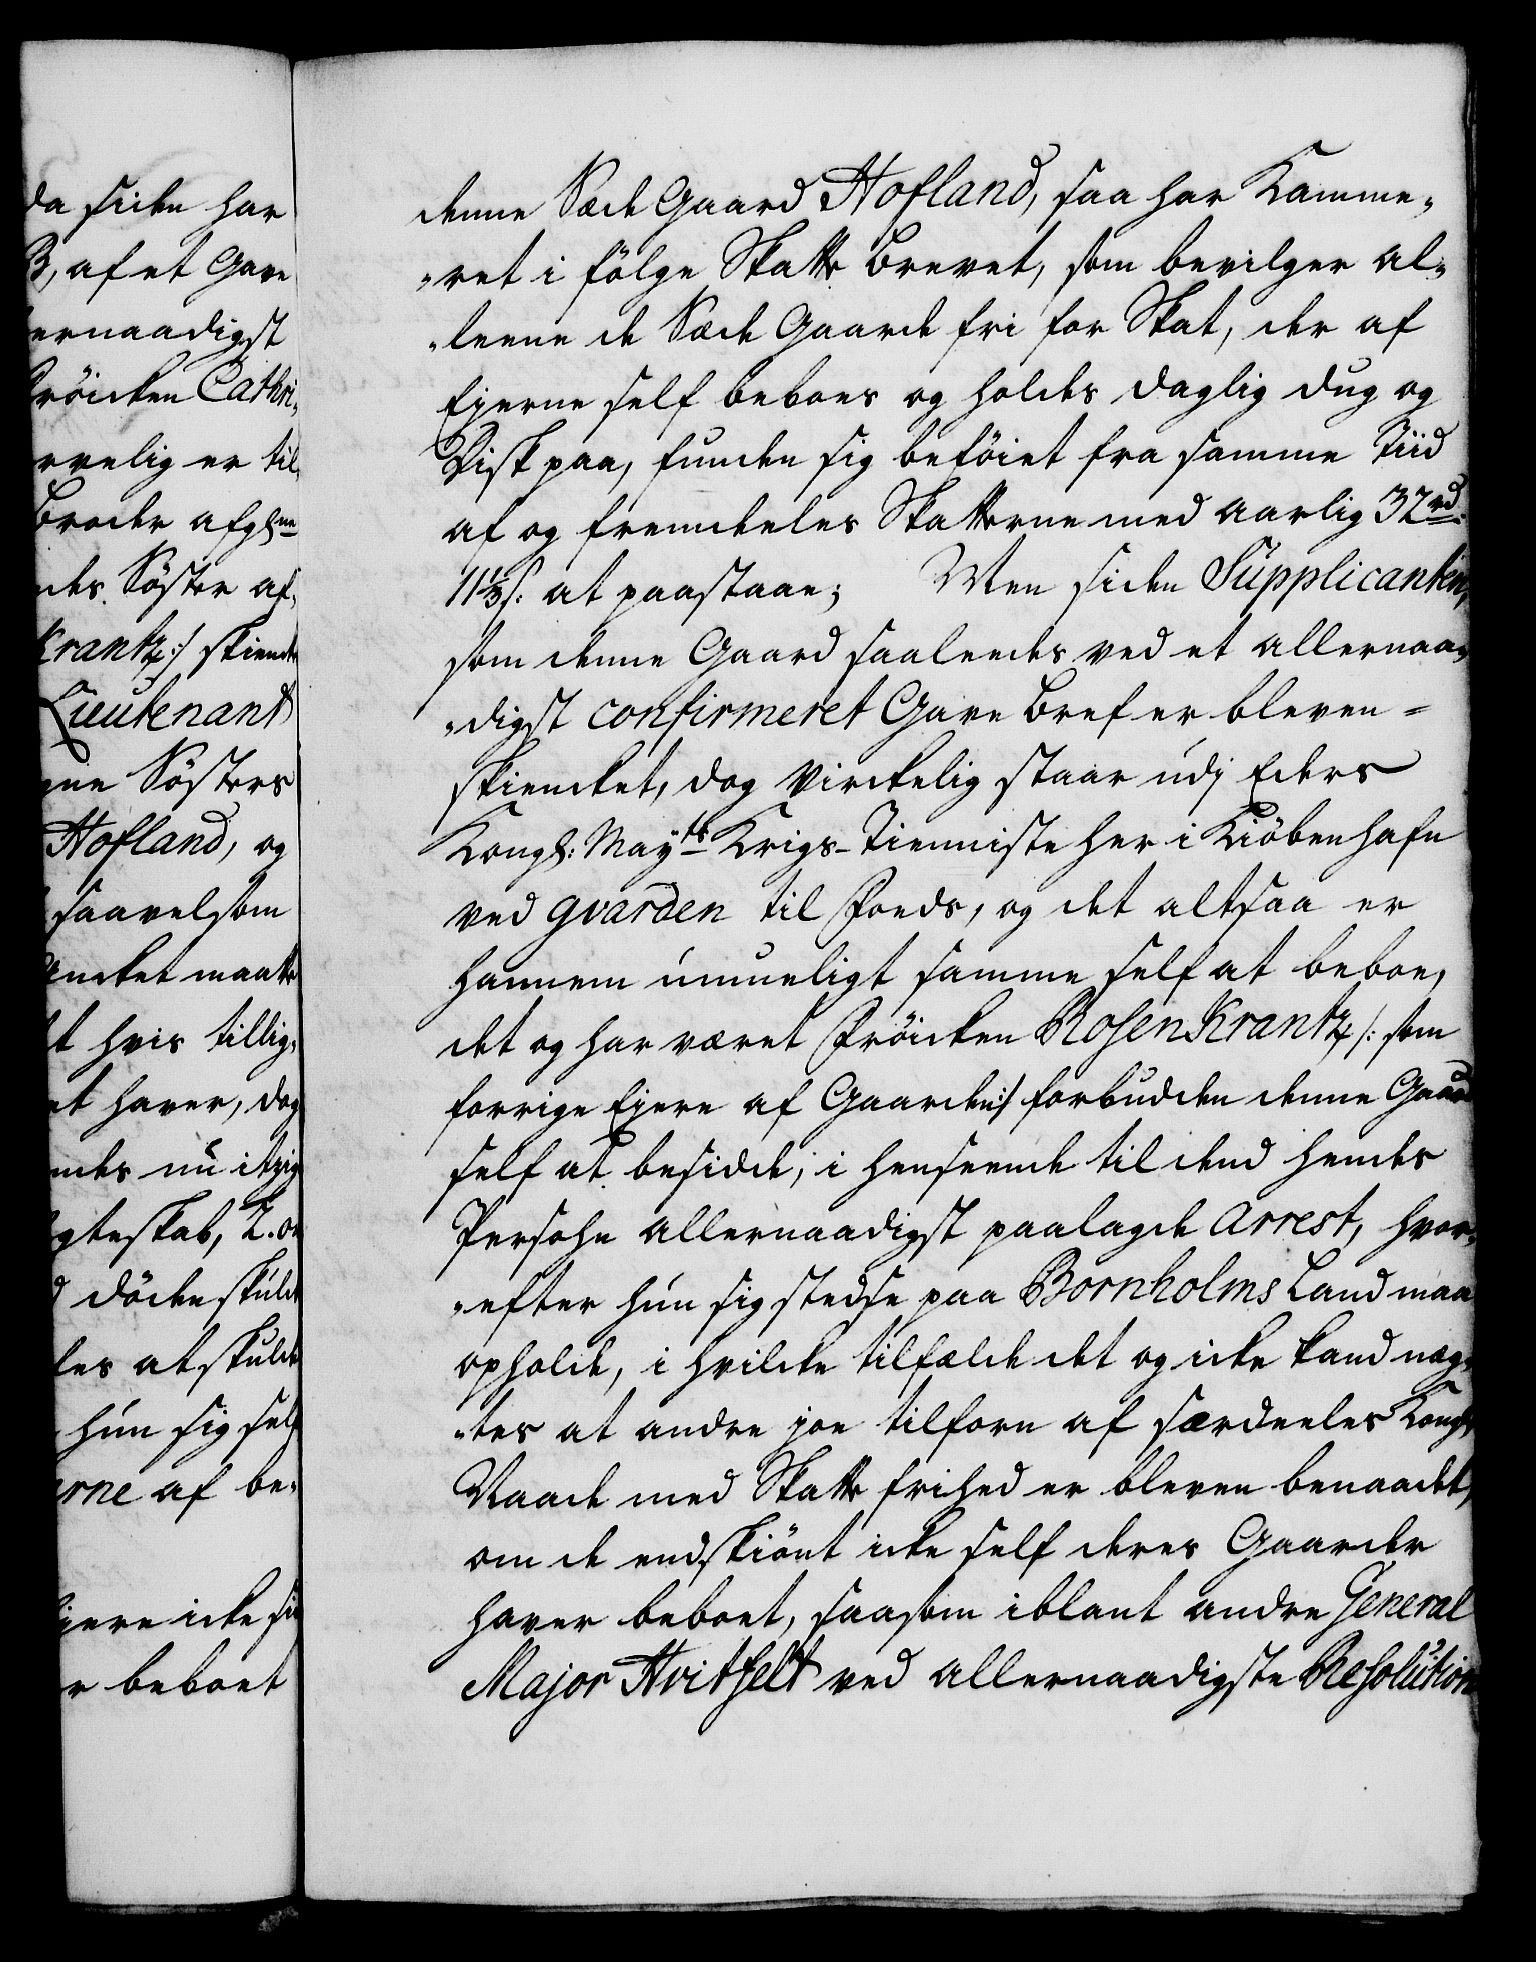 da siden har
B, af et Gave
ernaadigst
röicken Cathri„
rvelig er til„
Broder afgl:ne
ndes Söster af„
Krantz:/ skienck
Lieutenant
gne Sösters
Hofland, og
saavelsom
encket maatte
t hvis tillig„
et haver, dog
ndes nu itzig
gteskab, 2. o
d döde skulde
les at skulde
hun sig self
rne af be„
jere icke si
r beboet
denne Sæde Gaard Hofland, saa har Kamme„
„ret i fölge Skatte Brevet, som bevilger al„
„leene de Sæde Gaarde fri for Skat, der af
Ejerne self beboes og holdes daglig dug og
Disk paa, funden sig beföiet fra samme Tiid
af og fremdeeles Skatterne med aarlig 32 rd:
11⅓ s: at paastaae; Men siden Supplicanten,
som denne Gaard saaledes ved et allernaa„
„digst confirmeret Gave Bref er bleven =
skiencket, dog virckelig staar udj Eders
Kongl: Mayts Krigs-Tienniste her i Kiöbenhafn
ved gvarden til Foeds, og det altsaa er
hannem umueligt samme self at beboe,
det og har været Fröicken Rosenkrantz /: som
forrige Ejere af Gaarden:/ forbudden denne Gaard
self at besidde, i henseende til dend hendes
Persohn allernaadigst paalagde Arrest, hvor„
„efter hun sig stedse paa Bornholms Land maa
opholde, i hvilcke tilfælde det og icke kand næg„
„tes at andre joe tilforn af særdeeles Kongl:
Naade med Skatte frihed er bleven benaadet,
om de endskiönt icke self deres Gaarder
haver beboet, saasom iblant andre General
Major Hvitfelt ved allernaadigste Resolution